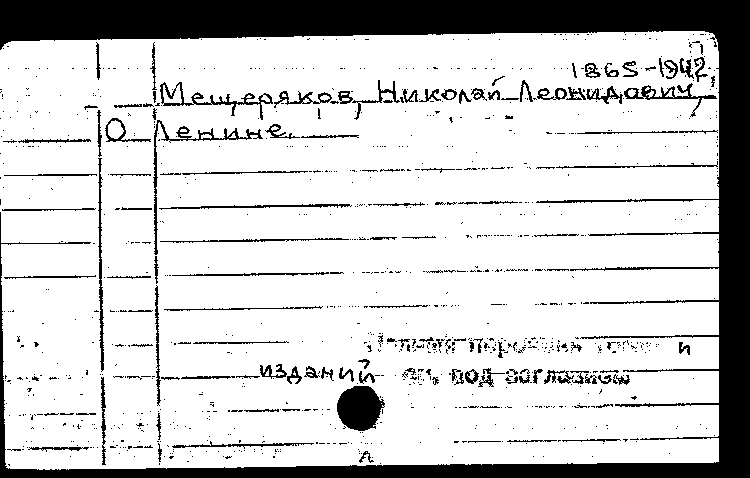 1865-1942,
Мещеряков, Николай Леонидович,
О Ленине.
и
изданий см. под заглавием